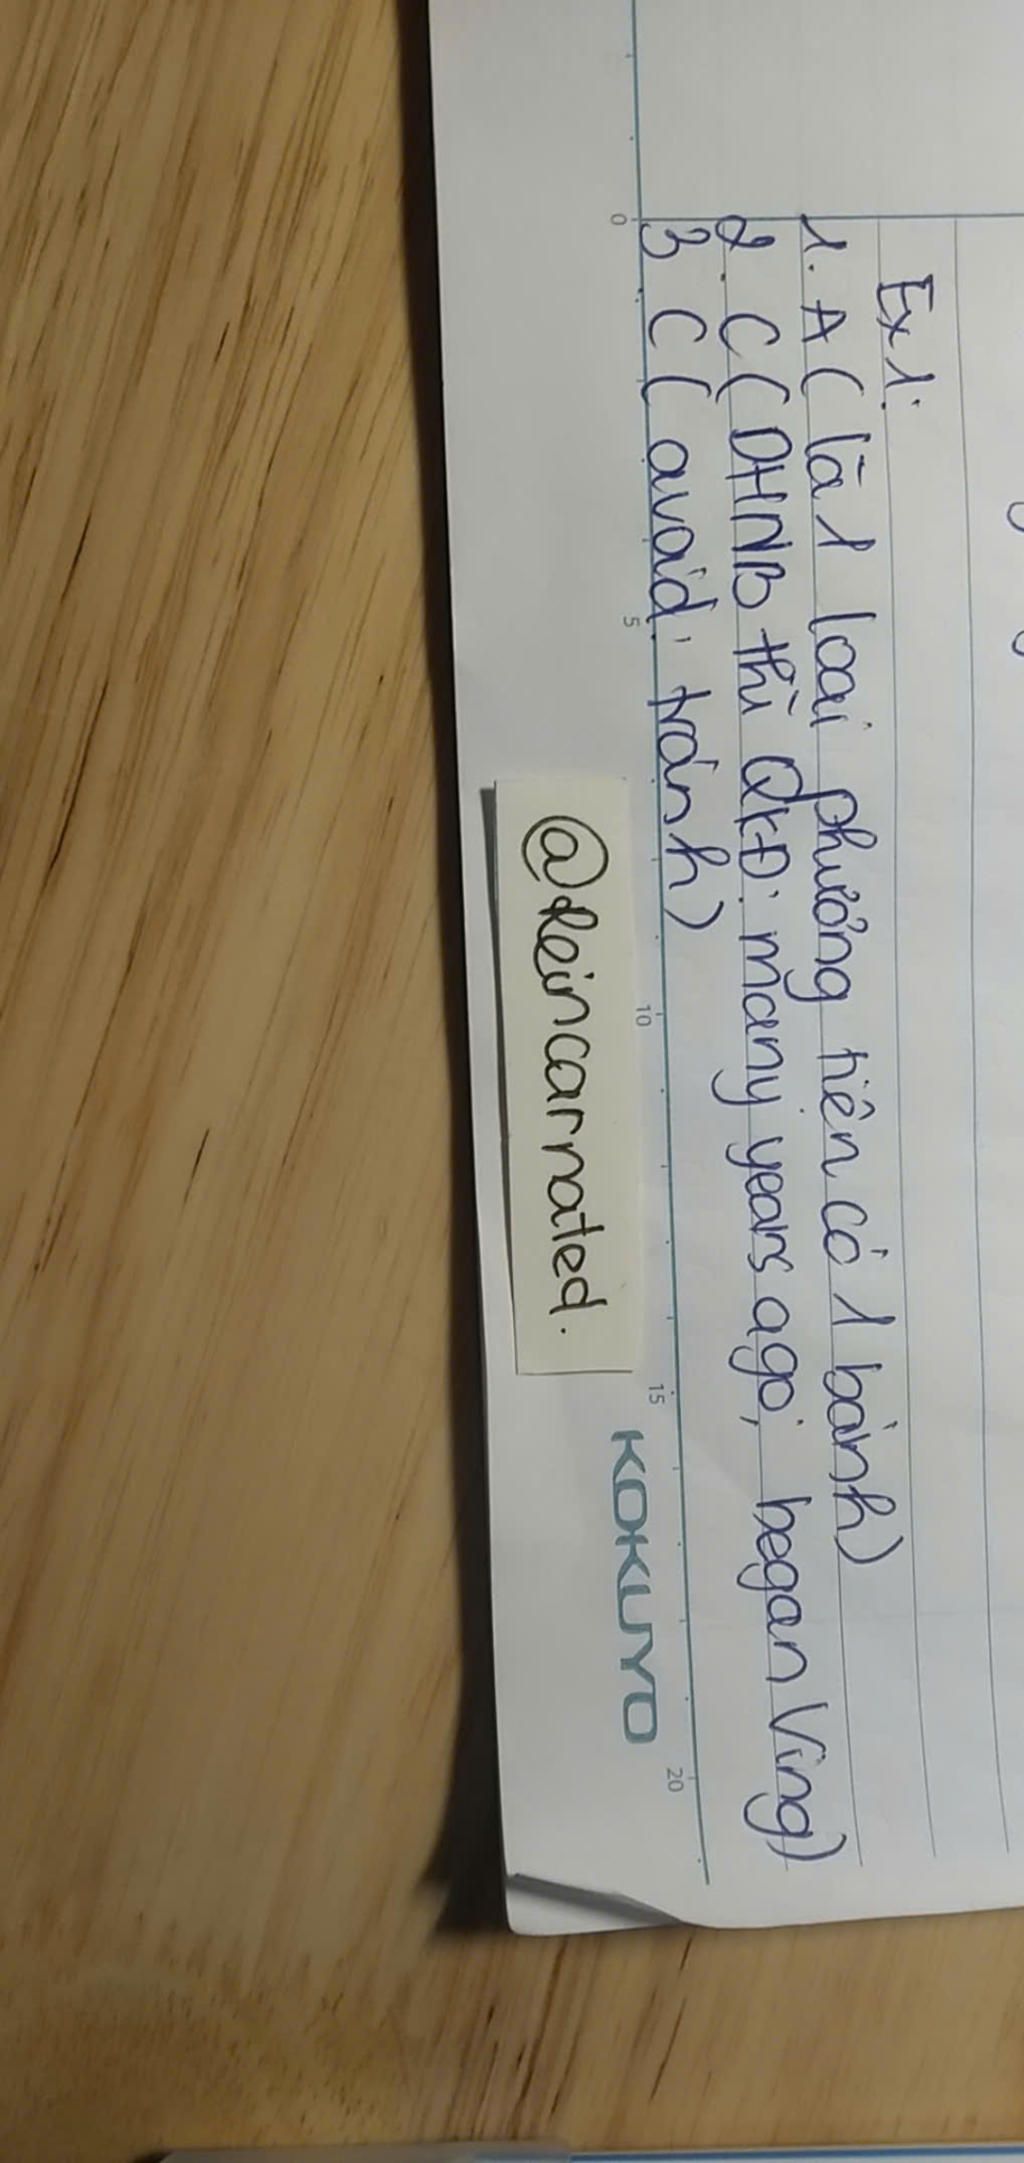 Ex1:
1. A ( là 1 loại phương tiện có 1 bánh)
2. C ( DHNB thì QKĐ: many years ago, began Ving)
3 C ( avoid: tránh)
0 5 10 15 20
@Reincarnated.
KOKUYO